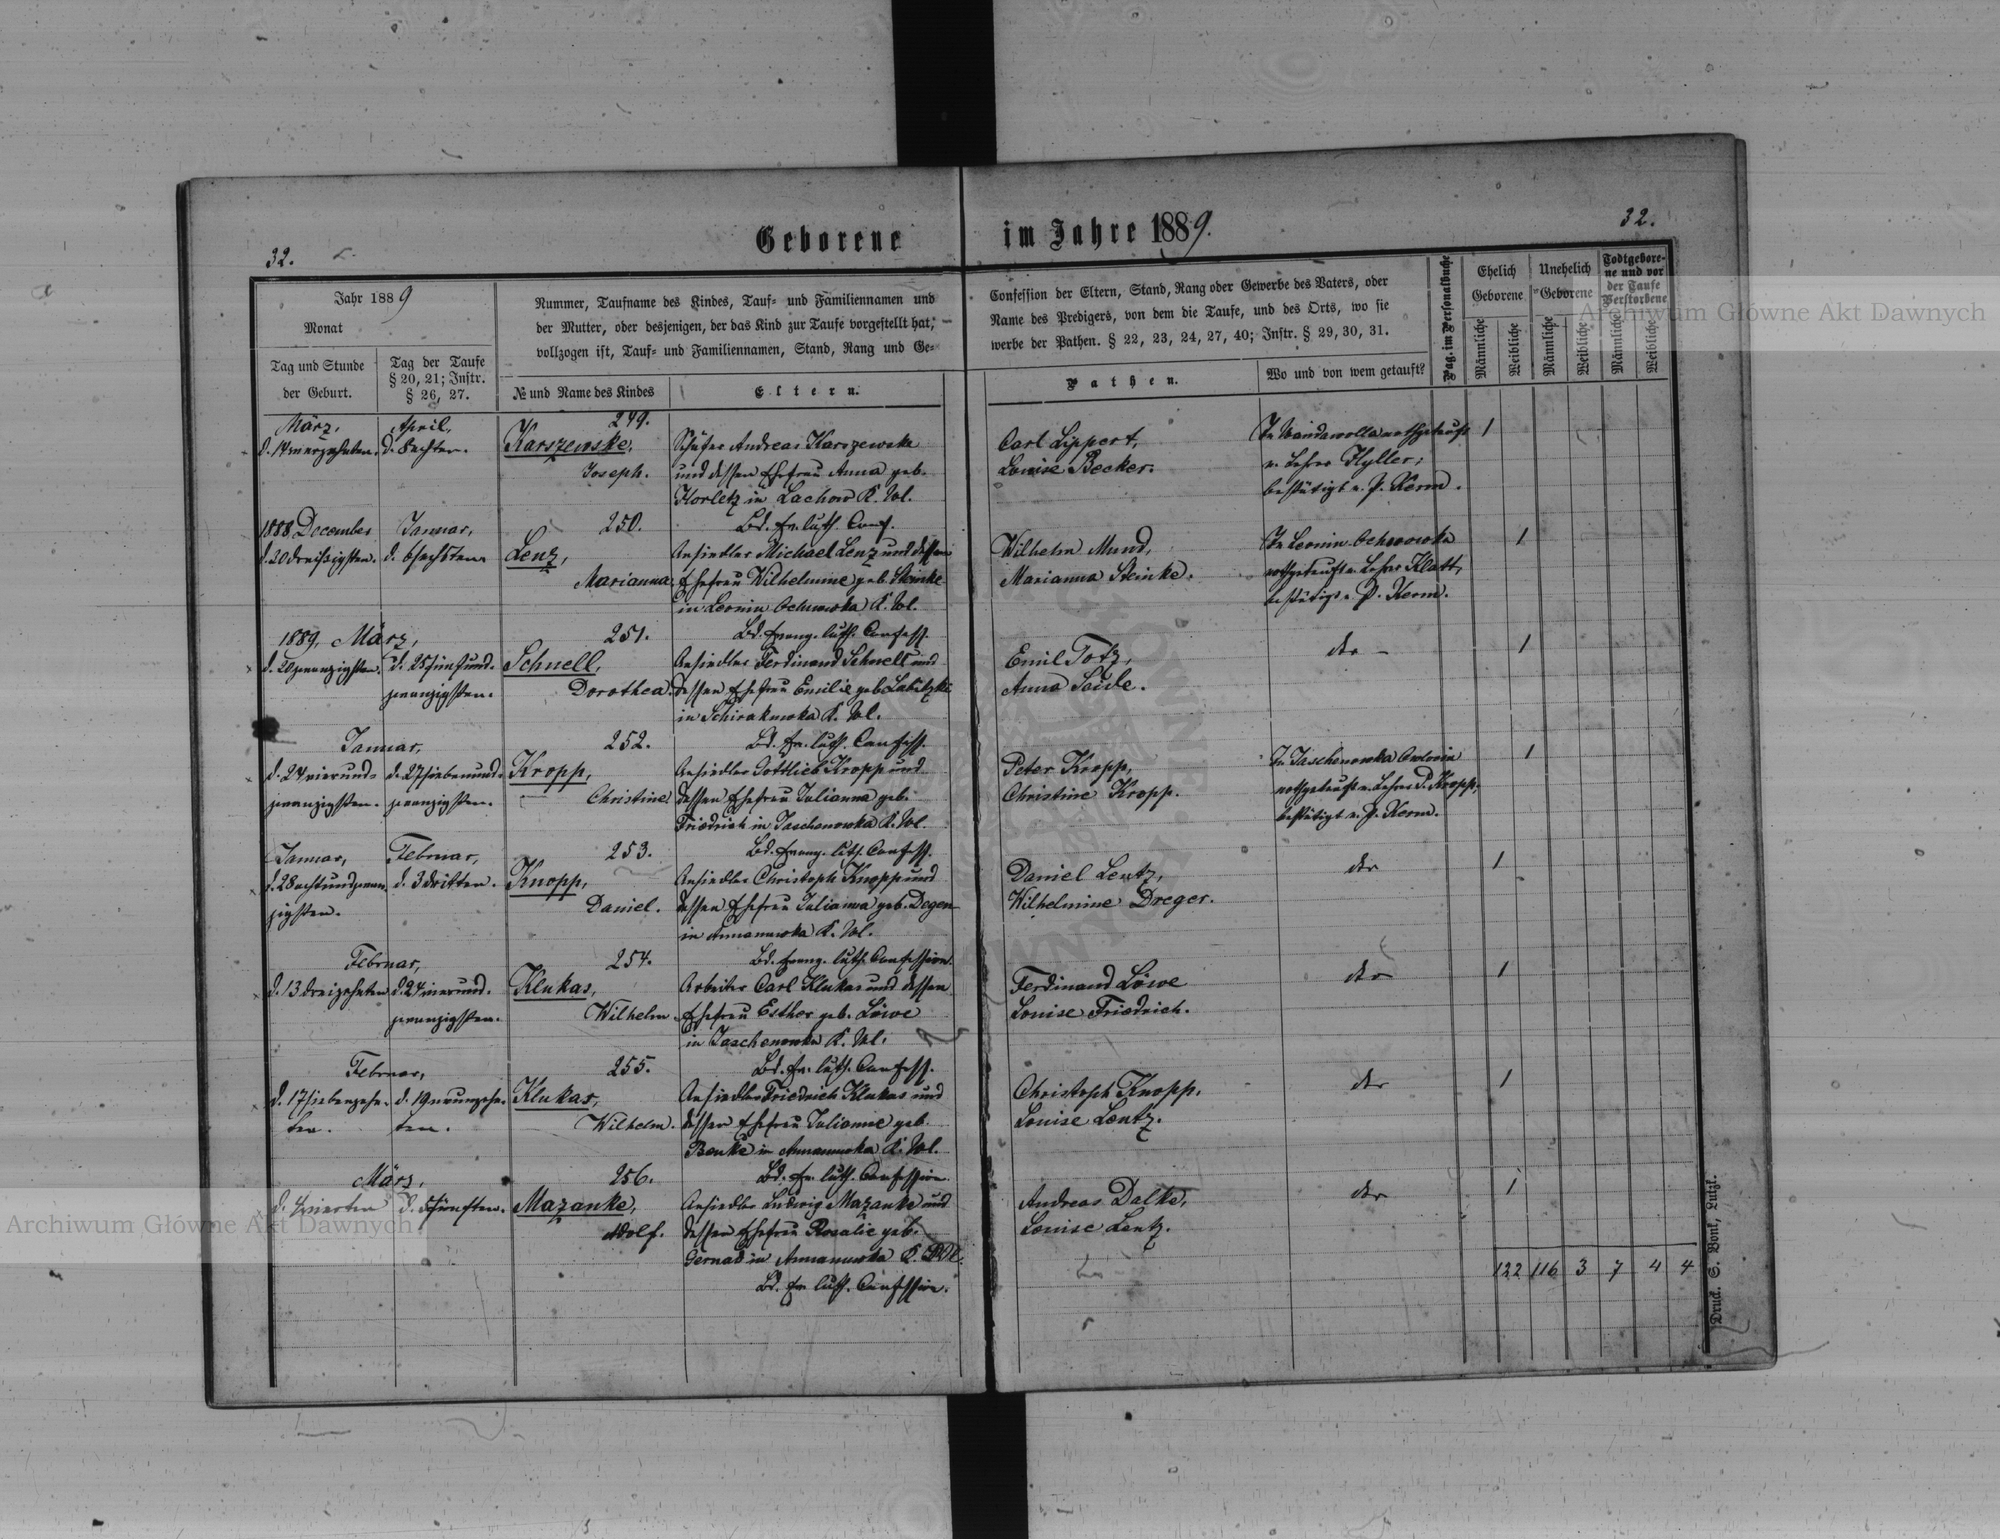 Geborene im Jahre 1889.
32.
32.
Jahr 1889
Monat
Tag und Stunde
der Geburt.
Tag der Taufe
§ 20, 21; Instr.
§ 26, 27.
Nummer, Taufname des Kindes, Tauf- und Familiennamen und
der Mutter, oder desjenigen, der das Kind zur Taufe vorgestellt hat,
vollzogen ist, Tauf- und Familiennamen, Stand, Rang und Ge-
№ und Name des Kindes
Eltern.
Confession der Eltern, Stand, Rang oder Gewerbe des Vaters, oder
Name des Predigers, von dem die Taufe, und des Orts, wo sie
werbe der Pathen. § 22, 23, 24, 27, 40; Instr. § 29, 30, 31.
Pathen.
Wo und von wem getauft?
Pag. im Personalbuche
Ehelich
Geborene
Unehelich
Geborene
Todtgebore-
ne und vor
der Taufe
Verstorbene
Männliche
Weibliche
Männliche
Weibliche
Männliche
Weibliche
März, April,
d. 14 vierzehnten. d. 8 achten.
249.
Karszewske,
Joseph.
Schäfer Andreas Karszewske
und dessen Ehefrau Anna geb.
Horletz in Lachow K. Wl.
Bd. Ev. luth. Conf.
Carl Lippert,
Louise Becker.
In Wandawolla nothgetauft
v. Lehrer Hyller;
bestätigt v. P. Kerm.
1
1888 December Januar,
d. 30 dreißigsten. d. 6 sechsten
250.
Lenz,
Marianna.
Ansiedler Michael Lenz und dessen
Ehefrau Wilhelmine geb. Steinke
in Leonin Ochowka K. Wl.
Bd. Evang. luth. Confess.
Wilhelm Mund,
Marianna Steinke.
In Leonin Ochowka
nothgetauft v. Lehrer Klatt,
bestätigt v. P. Kerm.
1
1889. März,
d. 20 zwanzigsten. d. 25 fünfund-
zwanzigsten.
251.
Schnell,
Dorothea.
Ansiedler Ferdinand Schnell und
dessen Ehefrau Emilie geb. Labitzke
in Schirakowka K. Wl.
Bd. Ev. luth. Confess.
Emil Totz,
Anna
der
1
Januar,
d. 24 vierund- d. 27 siebenund-
zwanzigsten. zwanzigsten.
252.
Kropp,
Christine.
Ansiedler Gottlieb Kropp und
dessen Ehefrau Julianna geb.
Friedrich in Jaschenowka K. Wl.
Bd. Evang. luth. Confess.
Peter Kropp,
Christine Kropp.
In Jaschenowka
nothgetauft v. Lehrer P. Kropp,
bestätigt v. P. Kerm.
1
Januar, Februar,
d. 28 achtundzwan- d. 3 dritten.
zigsten.
253.
Knopp,
Daniel.
Ansiedler Christoph Knopp und
dessen Ehefrau Julianna geb. Degen
in Annanowka K. Wl.
Bd. Evang. luth. Confession.
Daniel Lentz,
Wilhelmine Dreger.
der
1
Februar,
d. 13 dreizehnten d. 24 vierund-
zwanzigsten.
254.
Klukas,
Wilhelm.
Arbeiter Carl Klukas und dessen
Ehefrau Esther geb. Löwe
in Jaschenowka K. Wl.
Bd. Ev. luth. Confess.
Ferdinand Löwe
Louise Friedrich.
der
1
Februar,
d. 17 siebenzehn- d. 19 neunzehn-
ten. ten.
255.
Klukas,
Wilhelm.
Ansiedler Friedrich Klukas und
dessen Ehefrau Julianne geb.
Benke in Annanowka K. Wl.
Bd. Ev. luth. Confession.
Christoph Knopp,
Louise Lentz.
der
1
März,
d. 4 vierten d. 5 fünften.
256.
Mazanke,
Adolf.
Ansiedler Ludwig Mazanke und
dessen Ehefrau Rosalie geb.
Gernad in Annanowka K. Wl.
Bd. Ev. luth. Confession.
Andreas Dalke,
Louise Lentz.
der
1
122 116 3 7 4 4
Druck. S. Bonk, Lutzk.
Archiwum Główne Akt Dawnych
Archiwum Główne Akt Dawnych